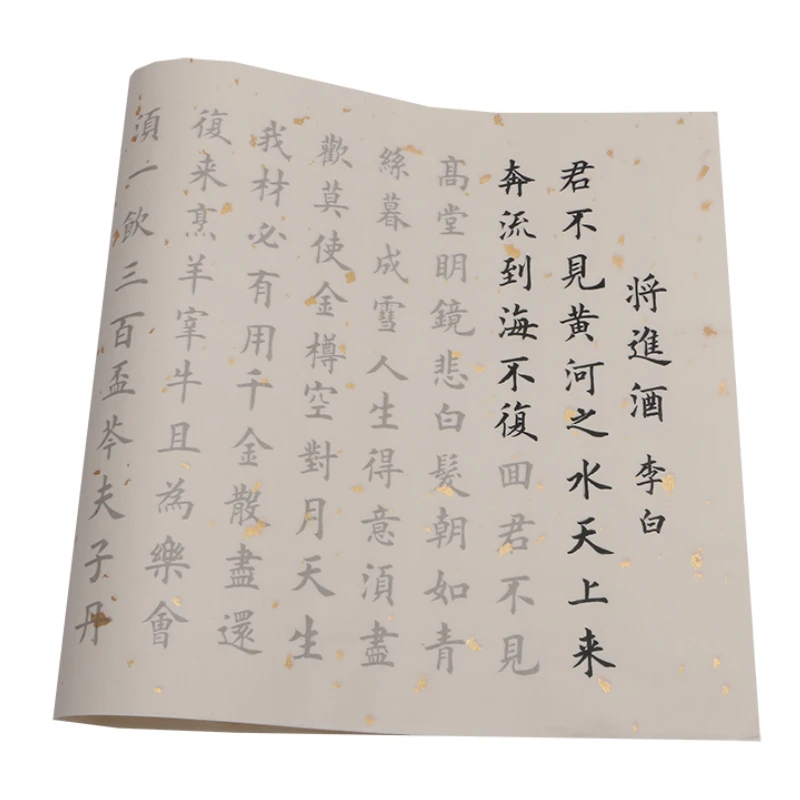 将進酒 李白
君不見黄河之水天上来
奔流到海不復回君不見
髙堂明鏡悲白髮朝如青
絲暮成雪人生得意須盡
歡莫使金樽空對月天生
我材必有用千金散盡還
復来烹羊宰牛且為樂會
須一飲三百盃岑夫子丹